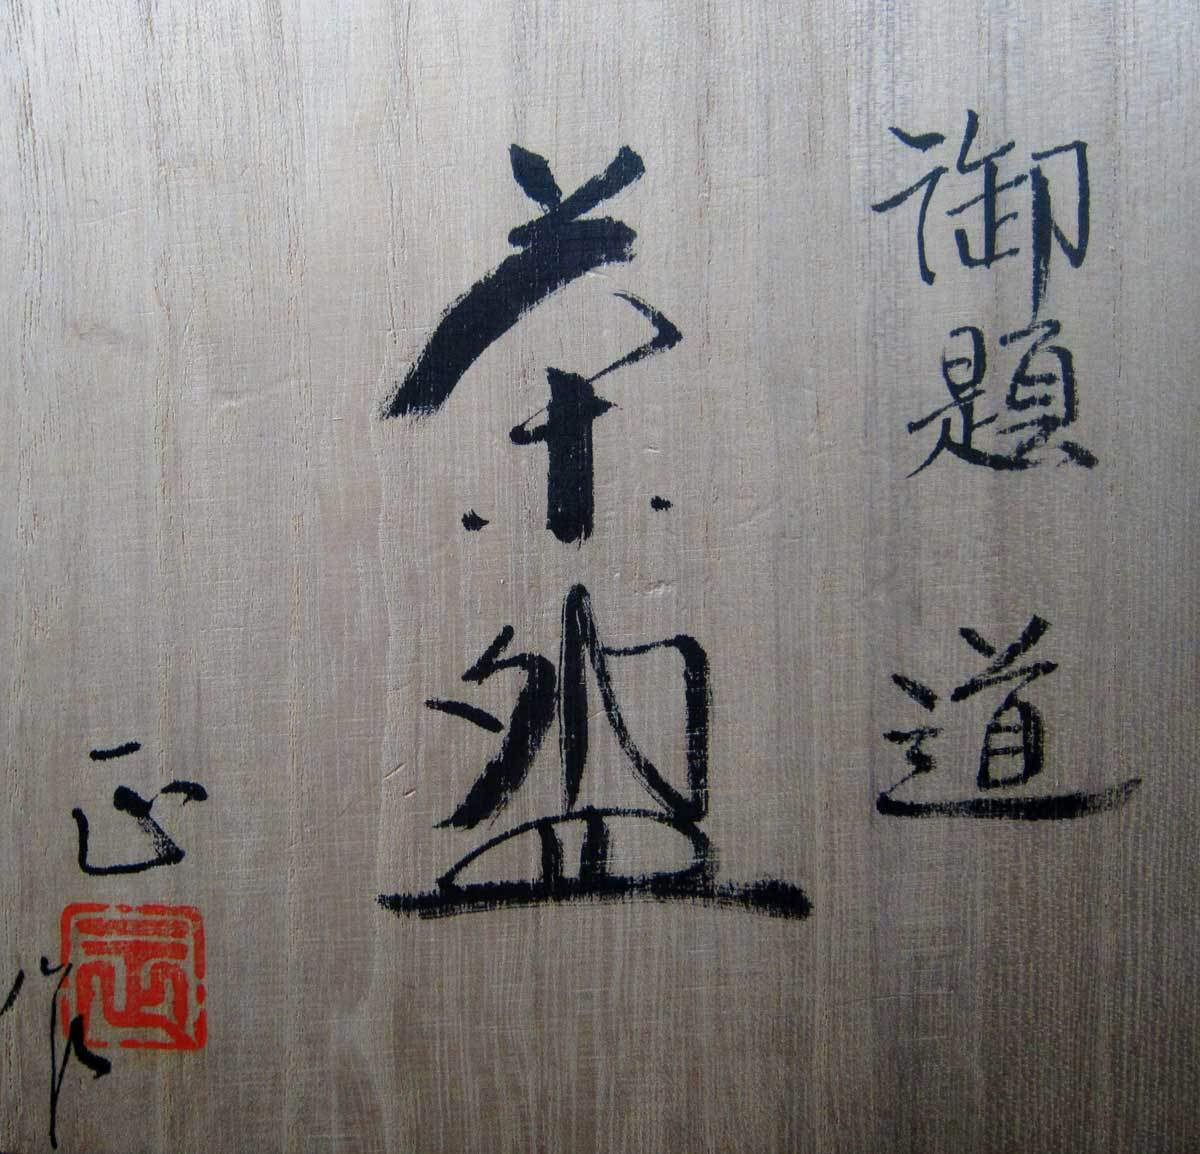 御題 道
茶盌
正